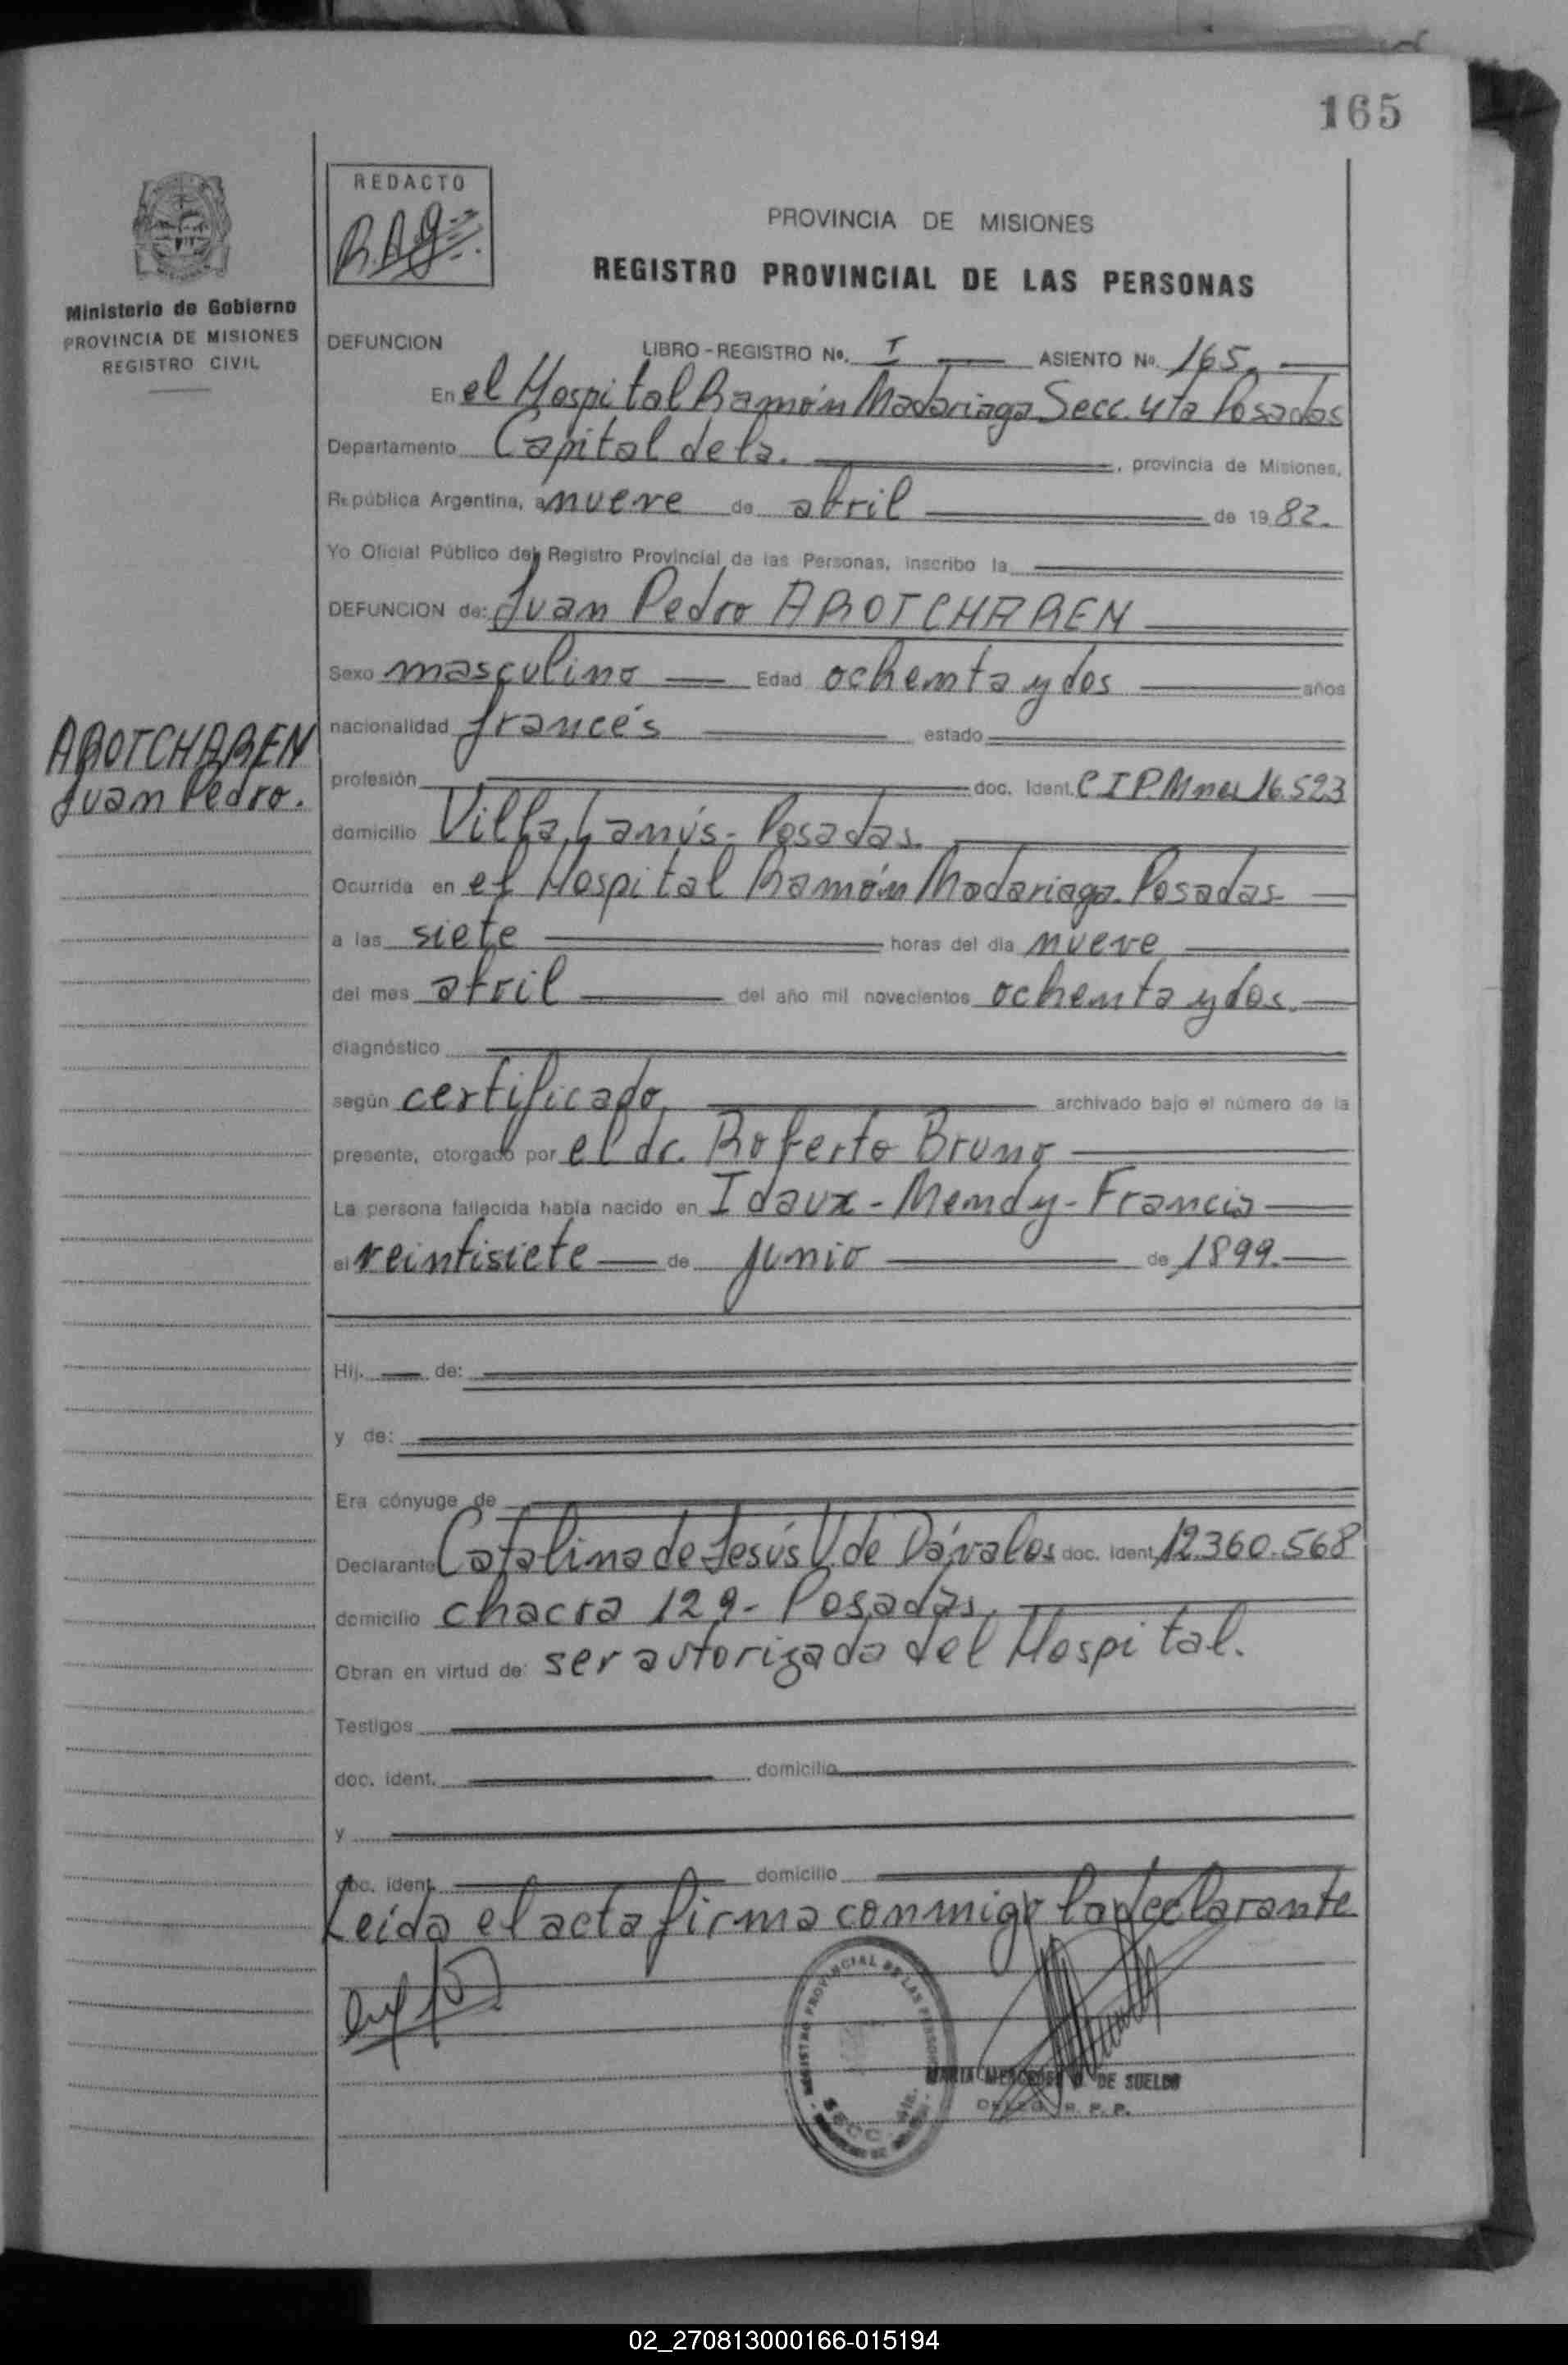 165
REDACTO
PROVINCIA DE MISIONES
REGISTRO PROVINCIAL DE LAS PERSONAS
Ministerio de Gobierno
PROVINCIA DE MISIONES
REGISTRO CIVIL
DEFUNCION LIBRO-REGISTRO Nº. I ASIENTO Nº. 165.
En el Hospital Ramón Madariaga Secc. 4ta Posadas
Departamento Capital de la. , provincia de Misiones,
República Argentina, a nueve de abril de 1982.
Yo Oficial Público del Registro Provincial de las Personas, inscribo la
DEFUNCION de: Juan Pedro AROTCHAREN
Sexo masculino Edad ochenta y dos años
nacionalidad francés estado
AROTCHAREN
Juan Pedro.
profesión doc. Ident. C I P. Mnes 16.523
domicilio Villa Lanús - Posadas.
Ocurrida en el Hospital Ramón Madariaga. Posadas
a las siete horas del día nueve
del mes abril del año mil novecientos ochenta y dos.
diagnóstico
según certificado archivado bajo el número de la
presente, otorgado por el dr. Roberto Bruno
La persona fallecida había nacido en Idaux - Mendy - Francia
el veintisiete de junio de 1899.
Hij. de:
y de:
Era cónyuge de
Declarante Catalina de Jesús V. de Dávalos doc. Ident. 12.360.568
domicilio chacra 129 - Posadas,
Obran en virtud de: ser autorizada del Hospital.
Testigos
doc. ident. domicilio
y
doc. ident. domicilio
Leída el acta firma conmigo la declarante
REGISTRO PROVINCIAL DE LAS PERSONAS
SECC. 4ta.
MARIA MERCEDES DE SUELDO
DELEG. R. P. P.
02_270813000166-015194